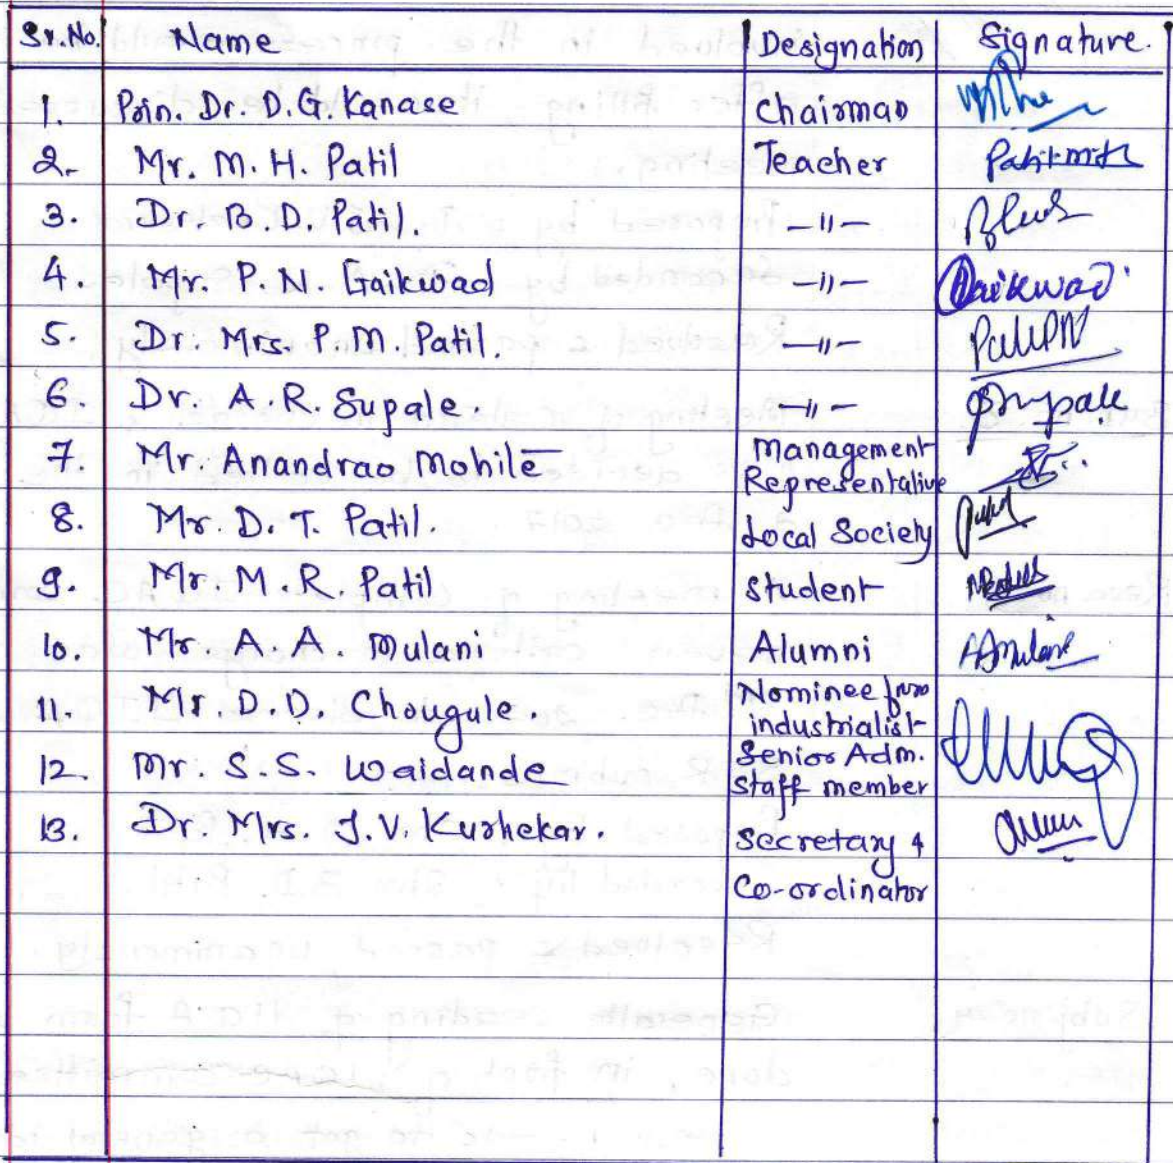 Sr.No. Name Designation Signature.
1. Prin. Dr. D. G. Kanase Chairman
2. Mr. M. H. Patil Teacher Patilmh
3. Dr. B. D. Patil. -11-
4. Mr. P. N. Gaikwad -11- Gaikwad
5. Dr. Mrs. P. M. Patil. -11- PatilPM
6. Dr. A. R. Supale -11- Supale
7. Mr. Anandrao Mohite Management
Representative
8. Mr. D. T. Patil. Local Society
9. Mr. M. R. Patil Student
10. Mr A. A. Mulani Alumni AAmulani
11. Mr. D. D. Chougule Nominee from
industrialist
12. Mr. S. S. Waidande Senior Adm.
Staff member
13. Dr. Mrs. J. V. Kurhekar. Secretary &
Co-ordinator